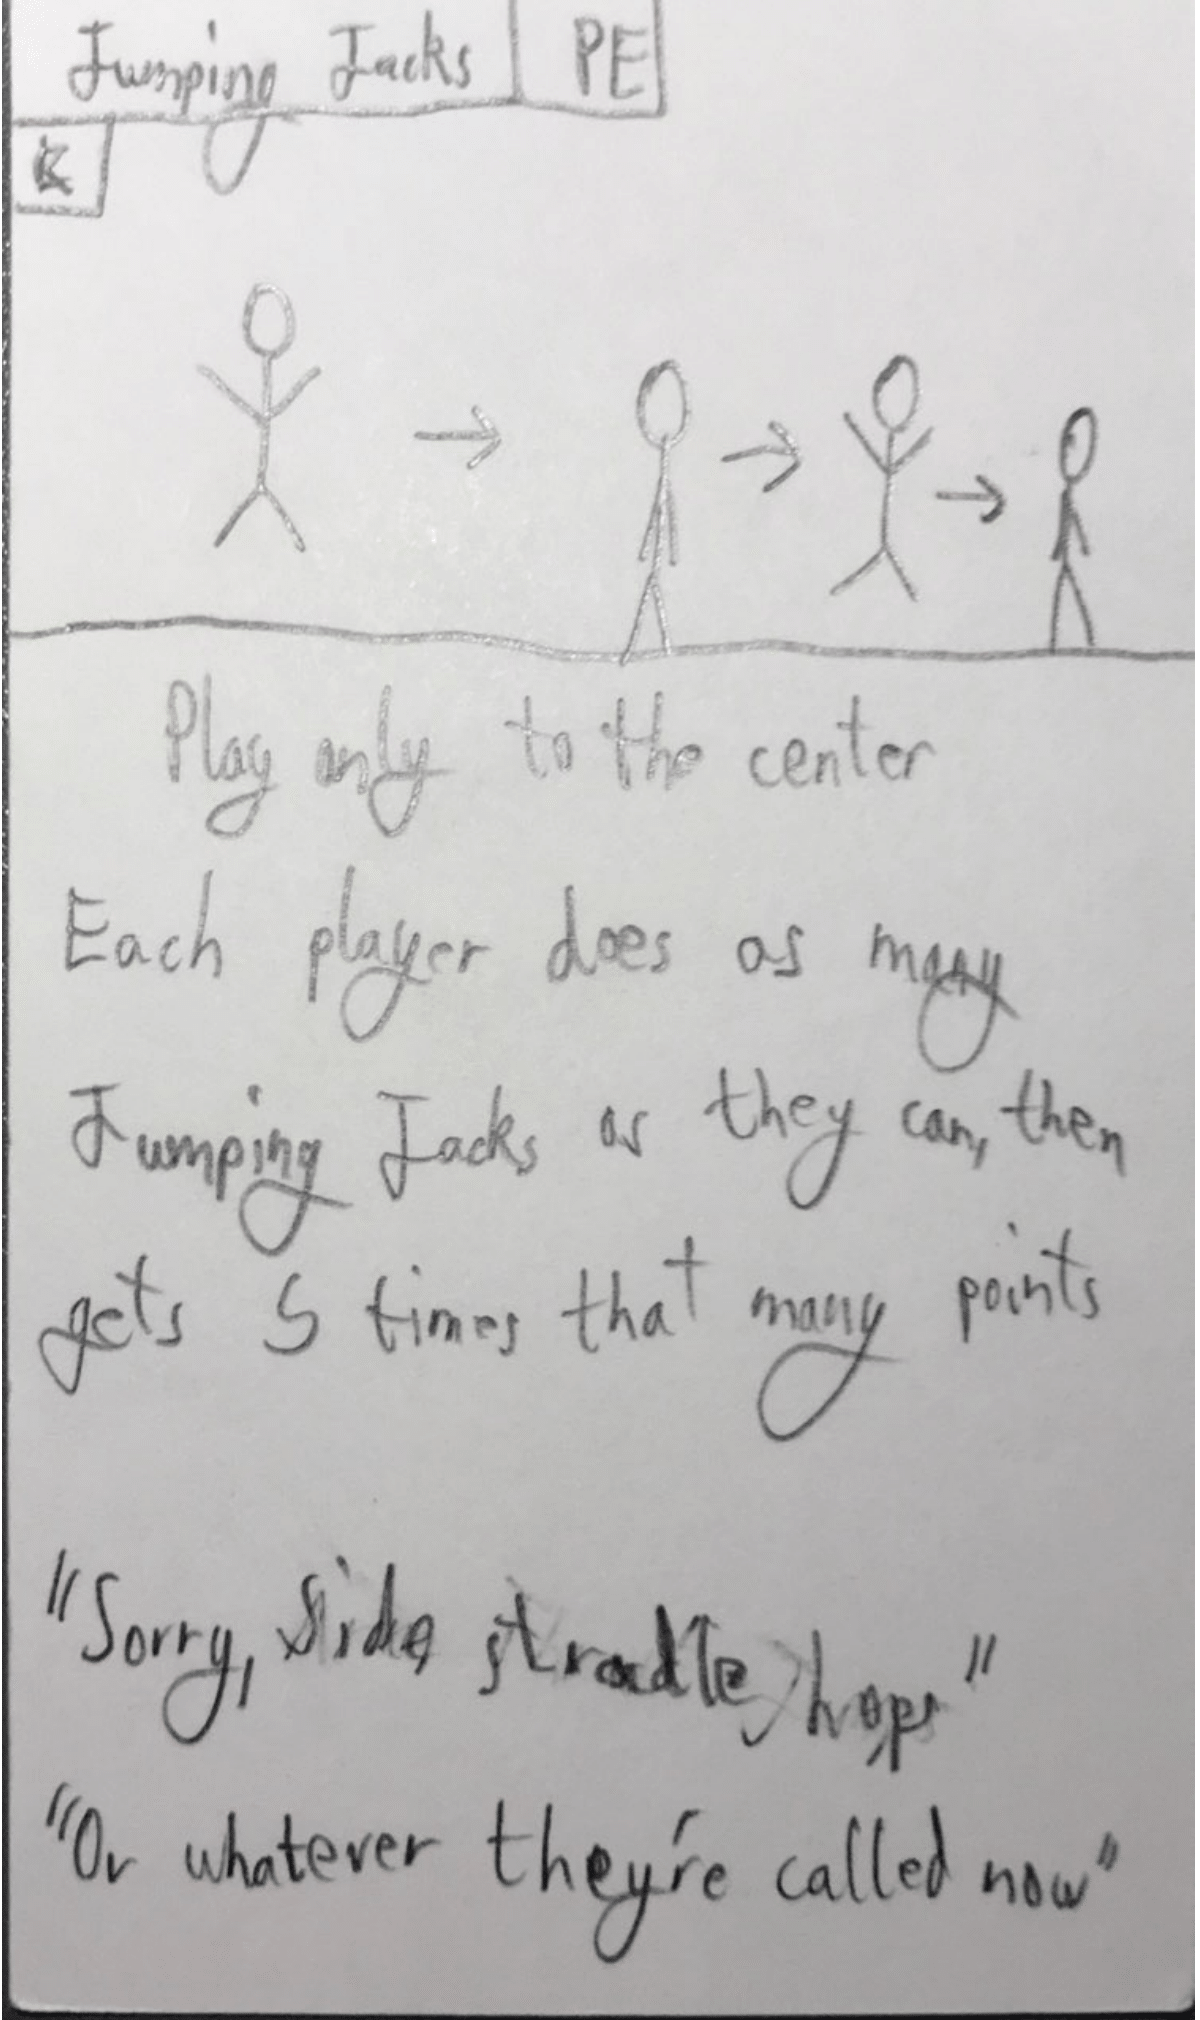 Jumping Jacks PE
Play only to the center
Each player does as many
Jumping Jacks as they can, then
gets 5 times that many points
"Sorry, side stradle hops"
"Or whatever they're called now"